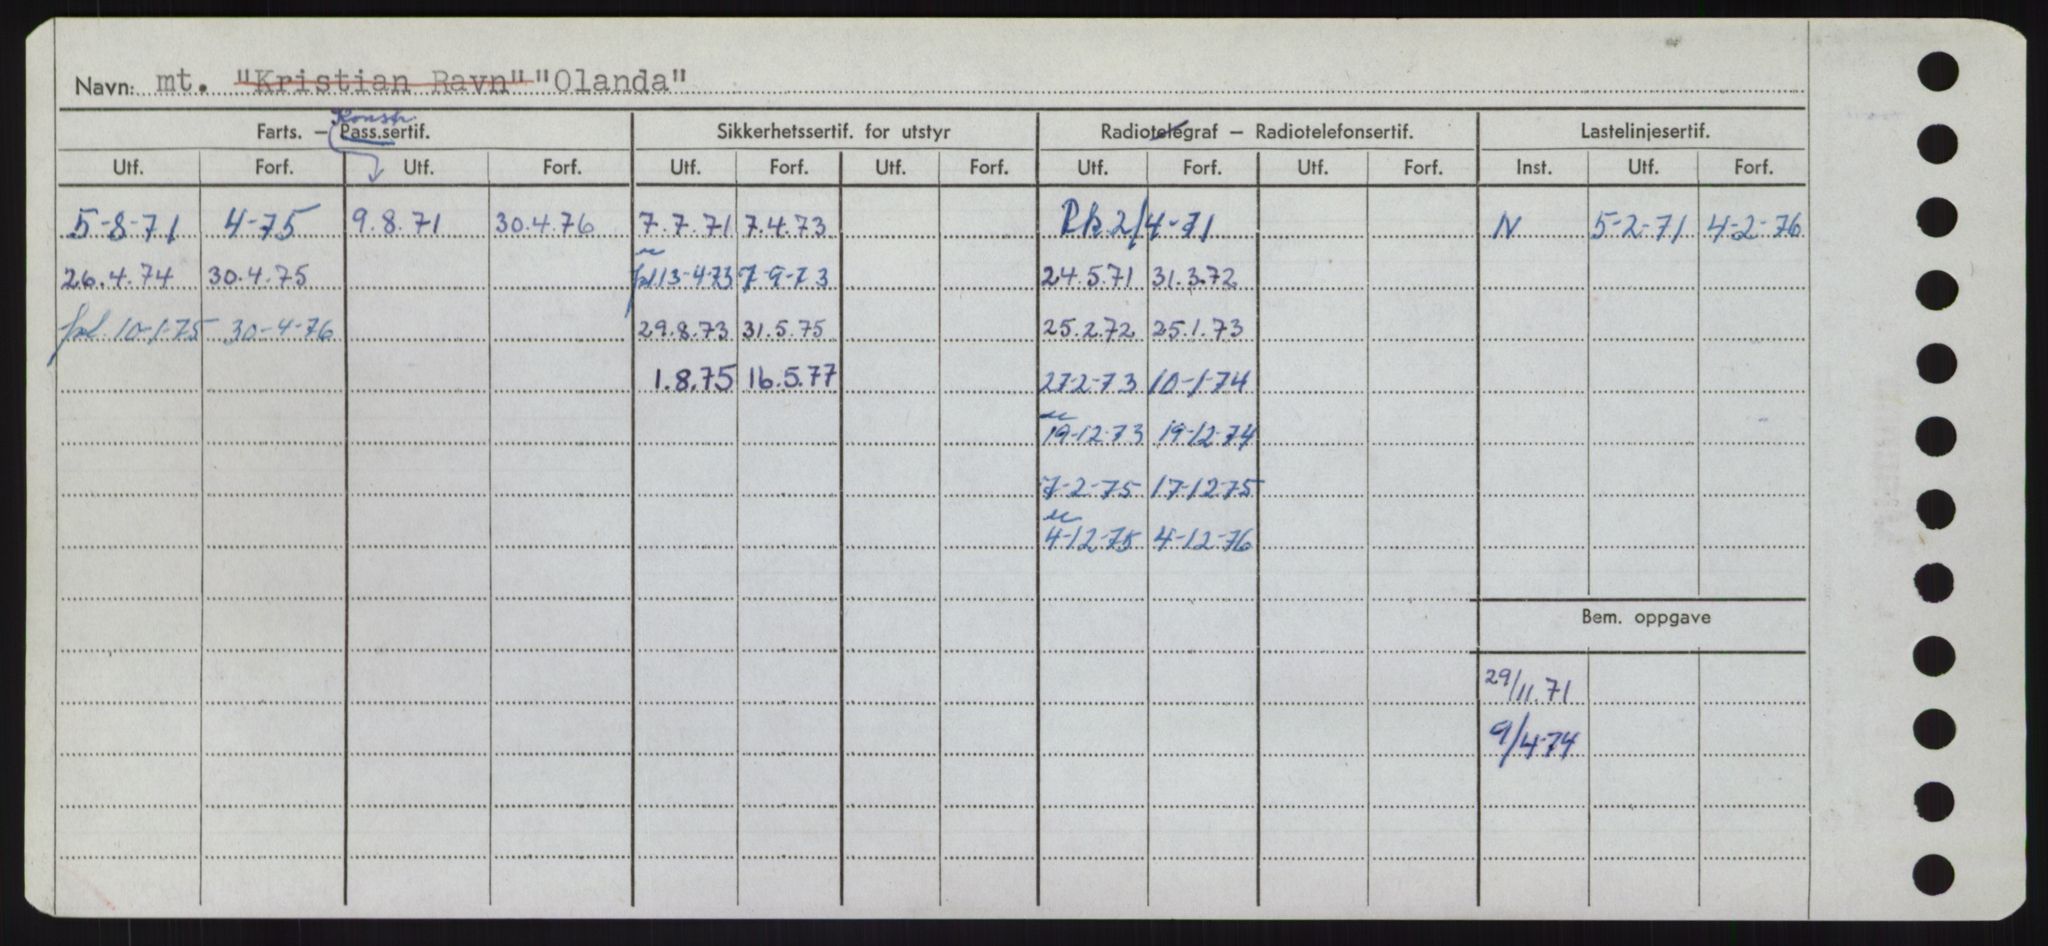 Navn: mt. "Kristian Ravn" "Olanda"
Konstr.
Farts. – Pass.sertif. Sikkerhetssertif. for utstyr Radiotelegraf – Radiotelefonsertif. Lastelinjesertif.
Utf. Forf. Utf. Forf. Utf. Forf. Utf. Forf. Utf. Forf. Utf. Forf. Inst. Utf. Forf.
5-8-71 4-75 9.8.71 30.4.76 7.7.71 7.4.73 2/4-71 N 5-2-71 4-2-76
26.4.74 30.4.75 13-4-73 7-9-73 24.5.71 31.3.72
frl. 10-1-75 30-4-76 29.8.73 31.5.75 25.2.72 25.1.73
1.8.75 16.5.77 27-2-73 10-1-74
19-12-73 19-12-74
7-2-75 17-12-75
4-12-75 4-12-76
Bem. oppgave
29/11.71
9/4-74